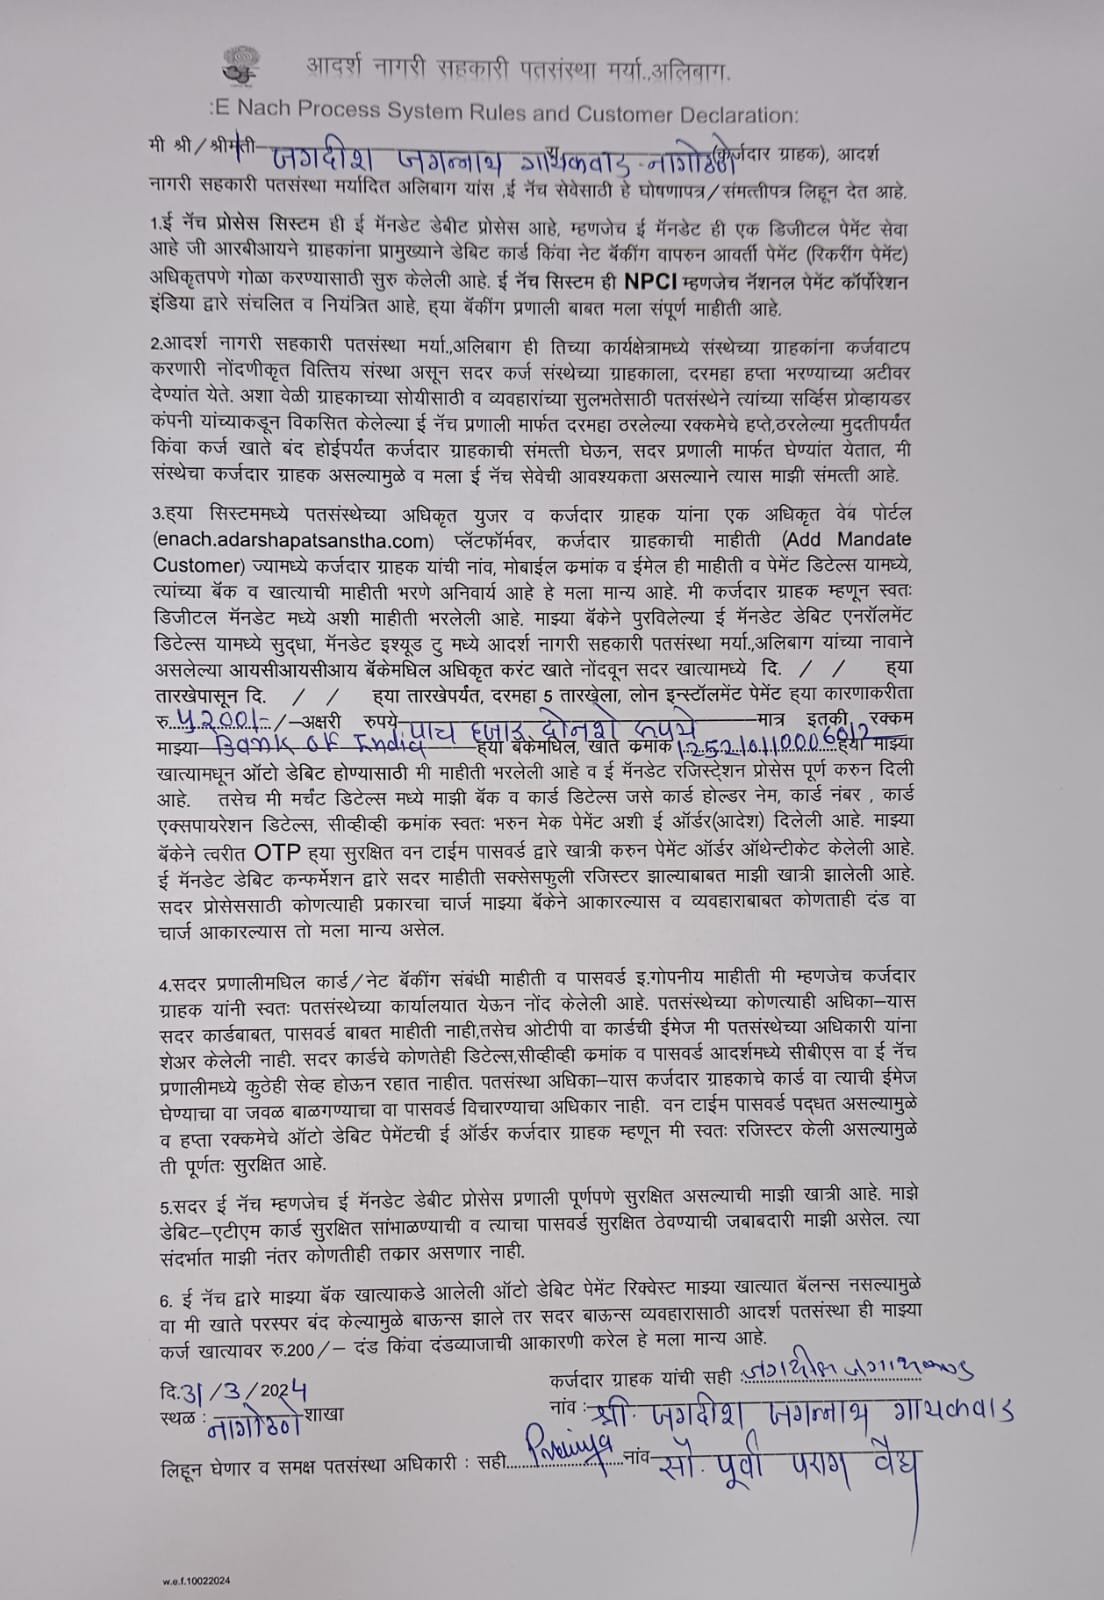 आदर्श नागरी सहकारी पतसंस्था मर्या.,अलिबाग.
:E Nach Process System Rules and Customer Declaration:
मी श्री/श्रीमती जगदीश जगन्नाथ गायकवाड - नागोठणे (कर्जदार ग्राहक), आदर्श
नागरी सहकारी पतसंस्था मर्यादित अलिबाग यांस ,ई नॅच सेवेसाठी हे घोषणापत्र/संमत्तीपत्र लिहून देत आहे.
1.ई नॅच प्रोसेस सिस्टम ही ई मॅनडेट डेबीट प्रोसेस आहे, म्हणजेच ई मॅनडेट ही एक डिजीटल पेमेंट सेवा
आहे जी आरबीआयने ग्राहकांना प्रामुख्याने डेबिट कार्ड किंवा नेट बॅकींग वापरुन आवर्ती पेमेंट (रिकरींग पेमेंट)
अधिकृतपणे गोळा करण्यासाठी सुरु केलेली आहे. ई नॅच सिस्टम ही NPCI म्हणजेच नॅशनल पेमेंट कॉर्पोरेशन
इंडिया द्वारे संचलित व नियंत्रित आहे, ह्या बॅकींग प्रणाली बाबत मला संपूर्ण माहीती आहे.
2.आदर्श नागरी सहकारी पतसंस्था मर्या.,अलिबाग ही तिच्या कार्यक्षेत्रामध्ये संस्थेच्या ग्राहकांना कर्जवाटप
करणारी नोंदणीकृत वित्तिय संस्था असून सदर कर्ज संस्थेच्या ग्राहकाला, दरमहा हप्ता भरण्याच्या अटीवर
देण्यांत येते. अशा वेळी ग्राहकाच्या सोयीसाठी व व्यवहारांच्या सुलभतेसाठी पतसंस्थेने त्यांच्या सर्व्हिस प्रोव्हायडर
कंपनी यांच्याकडून विकसित केलेल्या ई नॅच प्रणाली मार्फत दरमहा ठरलेल्या रक्कमेचे हप्ते,ठरलेल्या मुदतीपर्यंत
किंवा कर्ज खाते बंद होईपर्यंत कर्जदार ग्राहकाची संमत्ती घेऊन, सदर प्रणाली मार्फत घेण्यांत येतात, मी
संस्थेचा कर्जदार ग्राहक असल्यामुळे व मला ई नॅच सेवेची आवश्यकता असल्याने त्यास माझी संमत्ती आहे.
3.ह्या सिस्टममध्ये पतसंस्थेच्या अधिकृत युजर व कर्जदार ग्राहक यांना एक अधिकृत वेब पोर्टल
(enach.adarshapatsanstha.com) प्लॅटफॉर्मवर, कर्जदार ग्राहकाची माहीती (Add Mandate
Customer) ज्यामध्ये कर्जदार ग्राहक यांची नांव, मोबाईल क्रमांक व ईमेल ही माहीती व पेमेंट डिटेल्स यामध्ये,
त्यांच्या बॅक व खात्याची माहीती भरणे अनिवार्य आहे हे मला मान्य आहे. मी कर्जदार ग्राहक म्हणून स्वतः
डिजीटल मॅनडेट मध्ये अशी माहीती भरलेली आहे. माझ्या बॅकेने पुरविलेल्या ई मॅनडेट डेबिट एनरॉलमेंट
डिटेल्स यामध्ये सुद्धा, मॅनडेट इश्यूड टु मध्ये आदर्श नागरी सहकारी पतसंस्था मर्या.,अलिबाग यांच्या नावाने
असलेल्या आयसीआयसीआय बॅकेमधिल अधिकृत करंट खाते नोंदवून सदर खात्यामध्ये दि. / / ह्या
तारखेपासून दि. / / ह्या तारखेपर्यंत, दरमहा 5 तारखेला, लोन इन्स्टॉलमेंट पेमेंट ह्या कारणाकरीता
रु.५200/- /-अक्षरी रुपये पाच हजार दोनशे रूपये मात्र इतकी रक्कम
माझ्या Bank of India ह्या बॅकेमधिल, खाते क्रमांक 125210110006012 ह्या माझ्या
खात्यामधून ऑटो डेबिट होण्यासाठी मी माहीती भरलेली आहे व ई मॅनडेट रजिस्टे्शन प्रोसेस पूर्ण करुन दिली
आहे. तसेच मी मर्चंट डिटेल्स मध्ये माझी बॅक व कार्ड डिटेल्स जसे कार्ड होल्डर नेम, कार्ड नंबर , कार्ड
एक्सपायरेशन डिटेल्स, सीव्हीव्ही क्रमांक स्वतः भरुन मेक पेमेंट अशी ई ऑर्डर(आदेश) दिलेली आहे. माझ्या
बॅकेने त्वरीत OTP ह्या सुरक्षित वन टाईम पासवर्ड द्वारे खात्री करुन पेमेंट ऑर्डर ऑथेन्टीकेट केलेली आहे.
ई मॅनडेट डेबिट कन्फर्मेशन द्वारे सदर माहीती सक्सेसफुली रजिस्टर झाल्याबाबत माझी खात्री झालेली आहे.
सदर प्रोसेससाठी कोणत्याही प्रकारचा चार्ज माझ्या बॅकेने आकारल्यास व व्यवहाराबाबत कोणताही दंड वा
चार्ज आकारल्यास तो मला मान्य असेल.
4.सदर प्रणालीमधिल कार्ड/नेट बॅकींग संबंधी माहीती व पासवर्ड इ.गोपनीय माहीती मी म्हणजेच कर्जदार
ग्राहक यांनी स्वतः पतसंस्थेच्या कार्यालयात येऊन नोंद केलेली आहे. पतसंस्थेच्या कोणत्याही अधिका–यास
सदर कार्डबाबत, पासवर्ड बाबत माहीती नाही,तसेच ओटीपी वा कार्डची ईमेज मी पतसंस्थेच्या अधिकारी यांना
शेअर केलेली नाही. सदर कार्डचे कोणतेही डिटेल्स,सीव्हीव्ही क्रमांक व पासवर्ड आदर्शमध्ये सीबीएस वा ई नॅच
प्रणालीमध्ये कुठेही सेव्ह होऊन रहात नाहीत. पतसंस्था अधिका–यास कर्जदार ग्राहकाचे कार्ड वा त्याची ईमेज
घेण्याचा वा जवळ बाळगण्याचा वा पासवर्ड विचारण्याचा अधिकार नाही. वन टाईम पासवर्ड पद्धत असल्यामुळे
व हप्ता रक्कमेचे ऑटो डेबिट पेमेंटची ई ऑर्डर कर्जदार ग्राहक म्हणून मी स्वतः रजिस्टर केली असल्यामुळे
ती पूर्णतः सुरक्षित आहे.
5.सदर ई नॅच म्हणजेच ई मॅनडेट डेबीट प्रोसेस प्रणाली पूर्णपणे सुरक्षित असल्याची माझी खात्री आहे. माझे
डेबिट–एटीएम कार्ड सुरक्षित सांभाळण्याची व त्याचा पासवर्ड सुरक्षित ठेवण्याची जबाबदारी माझी असेल. त्या
संदर्भात माझी नंतर कोणतीही तक्रार असणार नाही.
6. ई नॅच द्वारे माझ्या बॅक खात्याकडे आलेली ऑटो डेबिट पेमेंट रिक्वेस्ट माझ्या खात्यात बॅलन्स नसल्यामुळे
वा मी खाते परस्पर बंद केल्यामुळे बाऊन्स झाले तर सदर बाऊन्स व्यवहारासाठी आदर्श पतसंस्था ही माझ्या
कर्ज खात्यावर रु.200/– दंड किंवा दंडव्याजाची आकारणी करेल हे मला मान्य आहे.
दि.31/3/2024
कर्जदार ग्राहक यांची सही :
स्थळ : नागोठणे शाखा
नांव : श्री. जगदीश जगन्नाथ गायकवाड
लिहून घेणार व समक्ष पतसंस्था अधिकारी : सही नांव सौ. पूर्वा पराग वैद्य
w.e.f.10022024